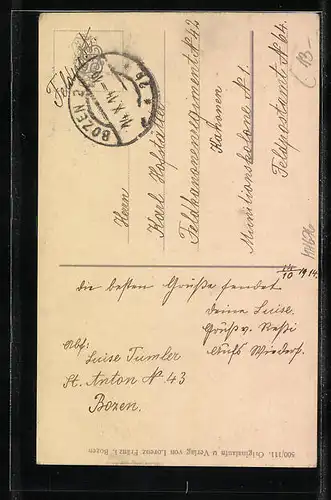 Feldpost
BOZEN 2
14.X.14
2b
Herrn
Karl Hofstätter
Feldkanonenregiment Nº 42
Kanonen
Munitionskolone Nº 1.
Feldpostamt Nº 64.
(13-
14/10 1914.
die besten Grüße sendet
deine Luise.
Gruß v. Resi
Aufs Wiederseh.
Abs:
Luise Tumler
St. Anton Nº 43
Bozen.
500/111. Originalaufn u Verlag von Lorenz Fränzl, Bozen